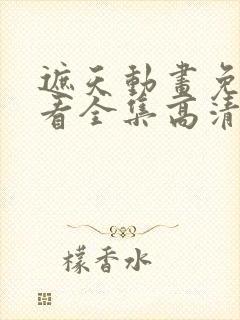 遮天動畫免
看全集高清
檬香水